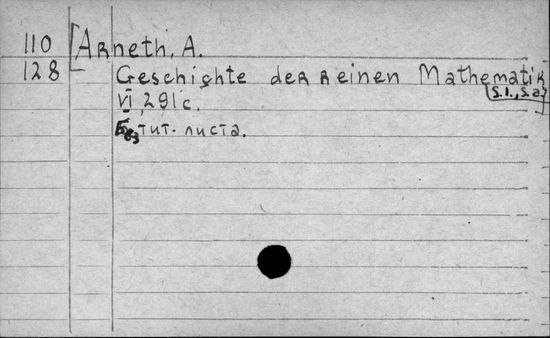 110 [Arneth, A.
128 Geschichte der reinen Mathematik
[s.l., s.a.]
VI, 291 с.
Без тит. листа.